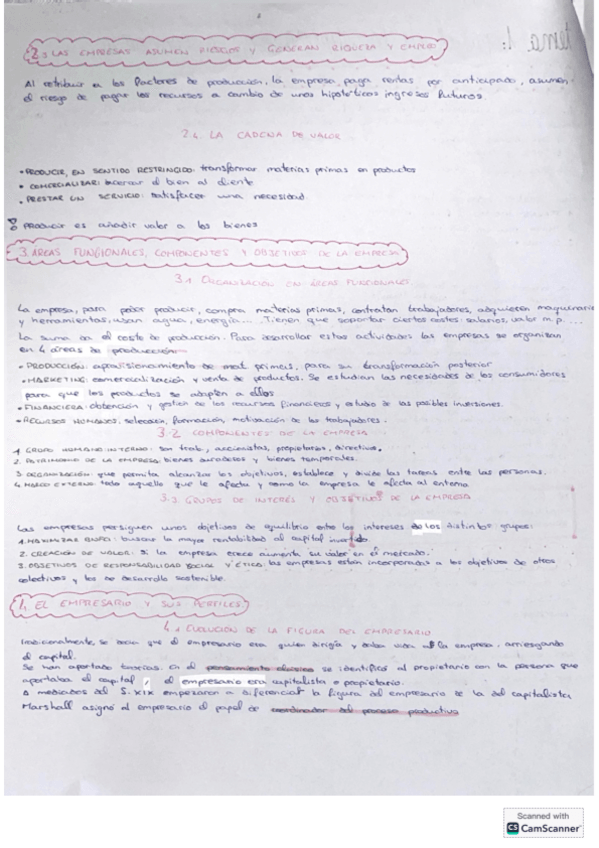 tema 1:
2.3 LAS EMPRESAS ASUMEN RIESGOS Y GENERAN RIQUEZA Y EMPLEO
Al retribuir a los factores de producción, la empresa paga rentas por anticipado, asumen
el riesgo de pagar los recursos a cambio de unos hipotéticos ingresos futuros.
2.4. LA CADENA DE VALOR
• PRODUCIR, EN SENTIDO RESTRINGIDO: transformar materias primas en productos
• COMERCIALIZAR: acercar el bien al cliente
• PRESTAR UN SERVICIO: satisfacer una necesidad
PRODUCIR es añadir valor a los bienes
3. AREAS FUNCIONALES, COMPONENTES Y OBJETIVOS DE LA EMPRESA
3.1 ORGANIZACIÓN EN ÁREAS FUNCIONALES.
La empresa, para poder producir, compra materias primas, contratan trabajadores, adquieren maquinaria
y herramientas, usan agua, energía.... Tienen que soportar ciertos costes: salarios, valor m.p....
La suma da el coste de producción. Para desarrollar estas actividades las empresas se organizan
en 4 áreas de producción
• PRODUCCIÓN: aprovisionamiento de mat. primas, para su transformación posterior
• MARKETING: comercialización y venta de productos. Se estudian las necesidades de los consumidores
para que los productos se adapten a ellos
• FINANCIERA: obtención y gestión de los recursos financieros y estudio de las posibles inversiones.
• RECURSOS HUMANOS: selección, formación, motivación de los trabajadores.
3.2 COMPONENTES DE LA EMPRESA
1. GRUPO HUMANO INTERNO: son trab., accionistas, propietarios, directivos.
2. PATRIMONIO DE LA EMPRESA: bienes duraderos y bienes temporales.
3. ORGANIZACIÓN: que permita alcanzar los objetivos, establece y divide las tareas entre las personas.
4. MARCO EXTERNO: todo aquello que le afecta y como la empresa le afecta al entorno
3.3. GRUPOS DE INTERÉS Y OBJETIVOS DE LA EMPRESA
Las empresas persiguen unos objetivos de equilibrio entre los intereses de los distintos grupos:
1. MAXIMIZAR BNFO: buscar la mayor rentabilidad al capital invertido
2. CREACIÓN DE VALOR: si la empresa crece aumenta su valor en el mercado.
3. OBJETIVOS DE RESPONSABILIDAD SOCIAL Y ÉTICO: las empresas están incorporadas a los objetivos de otros
colectivos y los de desarrollo sostenible.
4. EL EMPRESARIO Y SUS PERFILES.
4.1 EVOLUCIÓN DE LA FIGURA DEL EMPRESARIO
Tradicionalmente, se decía que el empresario era quien dirigía y daba vida a la empresa, arriesgando
el capital.
Se han aportado teorías. En el pensamiento clásico se identificó al propietario con la persona que
aportaba el capital, el empresario era capitalista o propietario.
A mediados del S. XIX empezaron a diferenciar la figura del empresario de la del capitalista,
Marshall asignó el empresario el papel de coordinador del proceso productivo
Scanned with
CS CamScanner